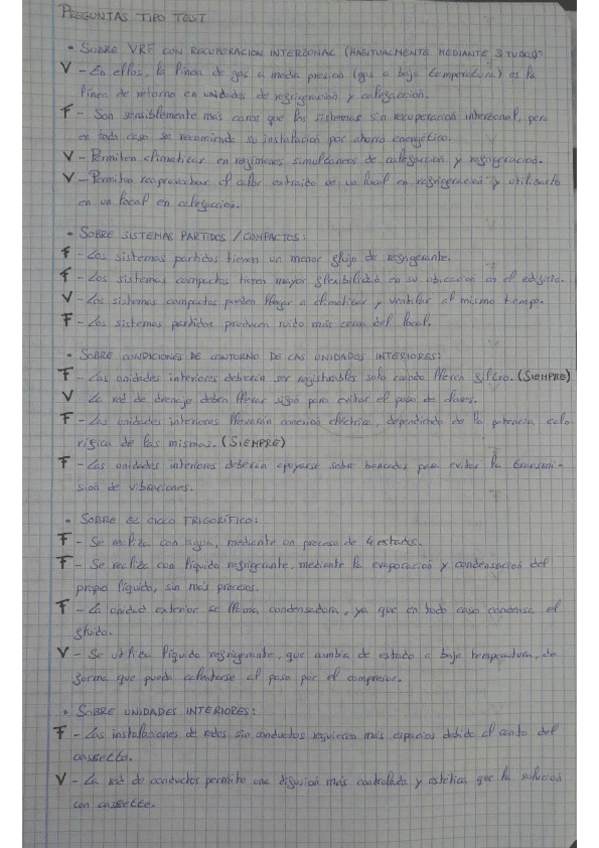 PREGUNTAS TIPO TEST
• SOBRE VRF CON RECUPERACION INTERZONAL (HABITUALMENTE MEDIANTE 3 TUBOS):
V - En ellos, la línea de gas a media presión (gas a baja temperatura) es la
línea de retorno en unidades de refrigeración y calefacción.
F - Son sensiblemente más caros que los sistemas sin recuperación interzonal, pero
en todo caso se recomienda su instalación por ahorro energético.
V - Permiten climatizar en regímenes simultáneos de calefacción y refrigeración.
V - Permiten reaprovechar el calor extraido de un local en refrigeración y utilizarlo
en un local en calefaccion.
• SOBRE SISTEMAS PARTIDOS / COMPACTOS:
F - Los sistemas partidos tienen un menor flujo de refrigerante.
F - Los sistemas compactos tienen mayor flexibilidad en su ubicación en el edificio.
V - Los sistemas compactos pueden llegar a climatizar y ventilar al mismo tiempo.
F - Los sistemas partidos producen ruido más cerca del local.
• SOBRE CONDICIONES DE CONTORNO DE LAS UNIDADES INTERIORES:
F - Las unidades interiores deberán ser registrables solo cuando lleven filtro. (SIEMPRE)
V - La red de drenaje deben llevar sifón para evitar el paso de olores.
F - Las unidades interiores llevarán conexión eléctrica, dependiendo de la potencia calo
rífica de las mismas. (SIEMPRE)
F - Las unidades interiores deberán apoyarse sobre bancadas para evitar la transmi-
sión de vibraciones.
• SOBRE EL CICLO FRIGORÍFICO:
F - Se realiza con agua, mediante un proceso de 4 estados.
F - Se realiza con líquido refrigerante, mediante la evaporación y condensación del
propio líquido, sin más procesos.
F - La unidad exterior se llama condensadora, ya que en todo caso condensa el
fluido.
V - Se utiliza líquido refrigerante, que cambia de estado a baja temperatura, de
forma que pueda calentarse al paso por el compresor.
• SOBRE UNIDADES INTERIORES:
F - Las instalaciones de redes sin conductos requieren más espacios debido al canto del
cassette.
V - La red de conductos permite una difusión más controlada y estética que la solución
con cassette.